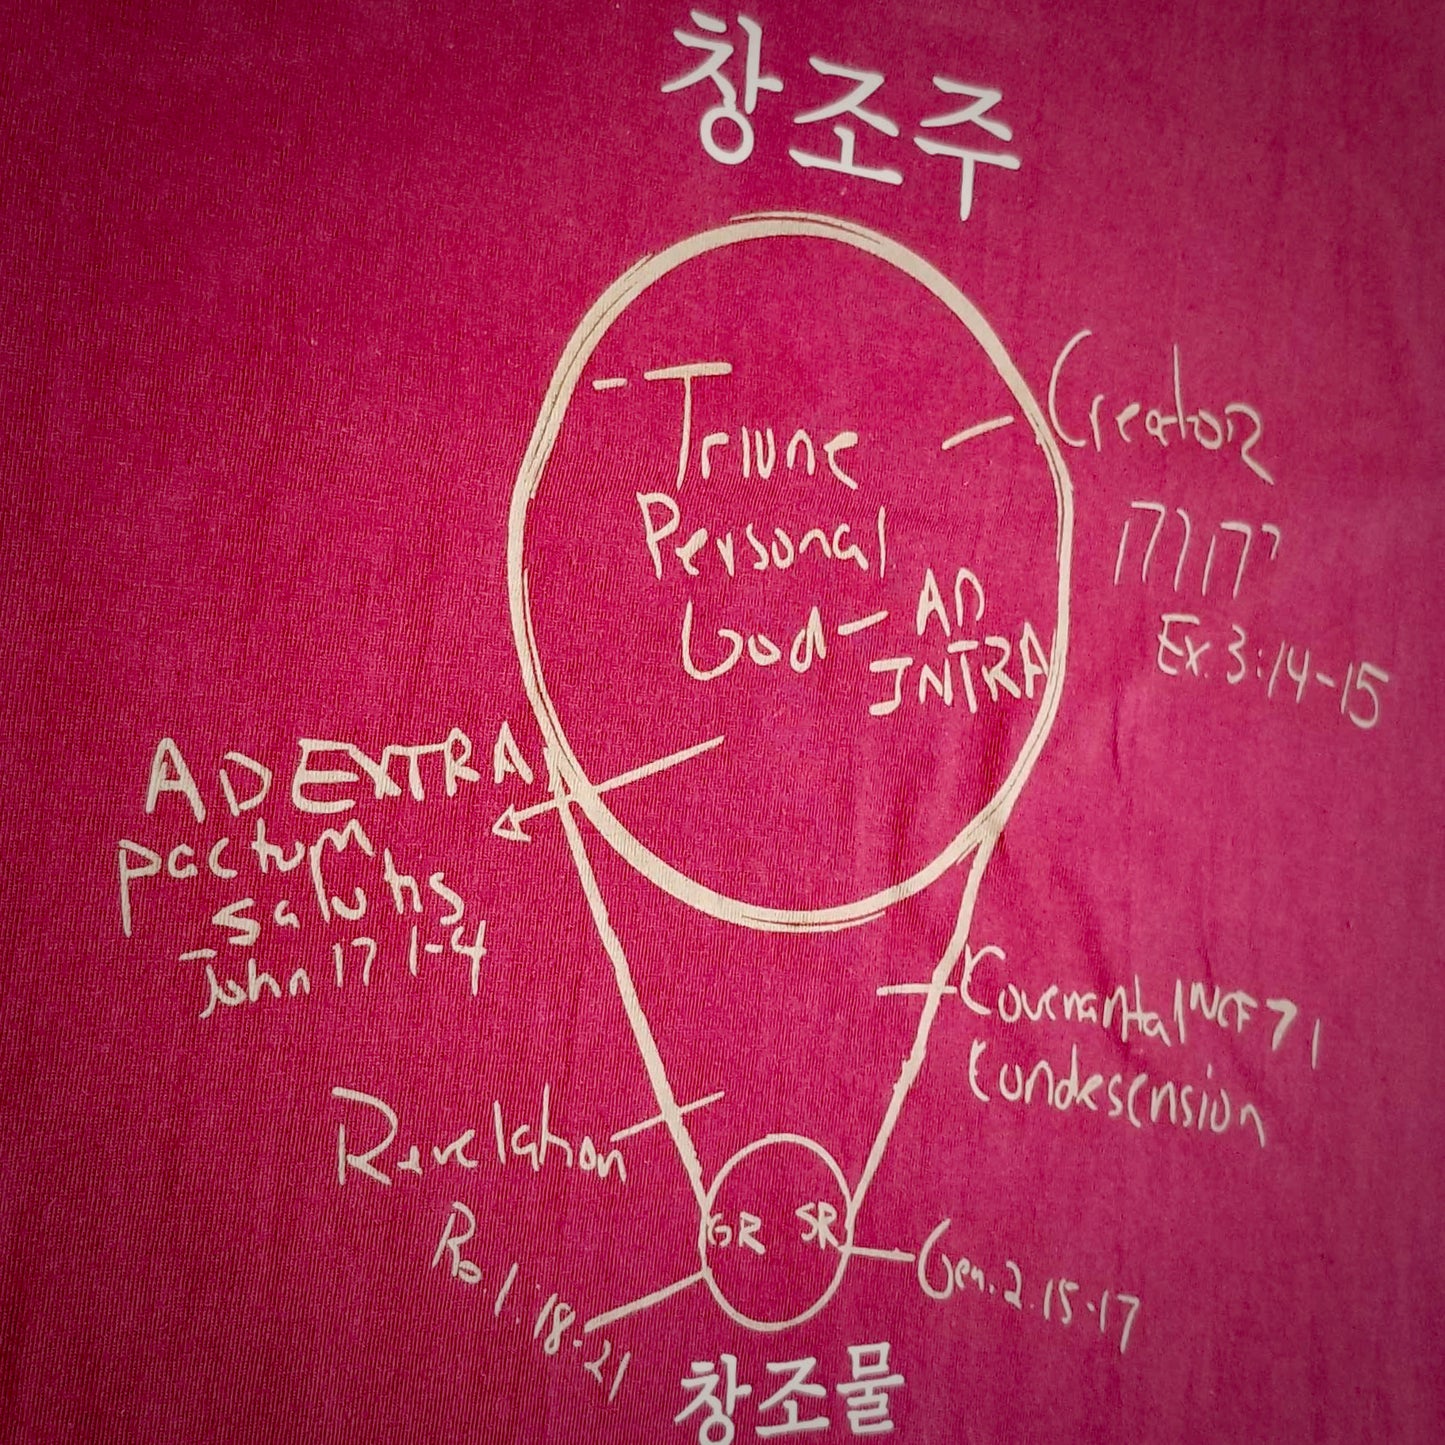 창조주
- Triune
Personal
God - AD
INTRA
Creator
יהוה
Ex. 3:14-15
AD EXTRA
pactum
salutis
John 17 1-4
Covenantal WCF 7 1
Condescension
Revelation
Ro. 1:18-21
GR SR
Gen. 2.15-17
창조물